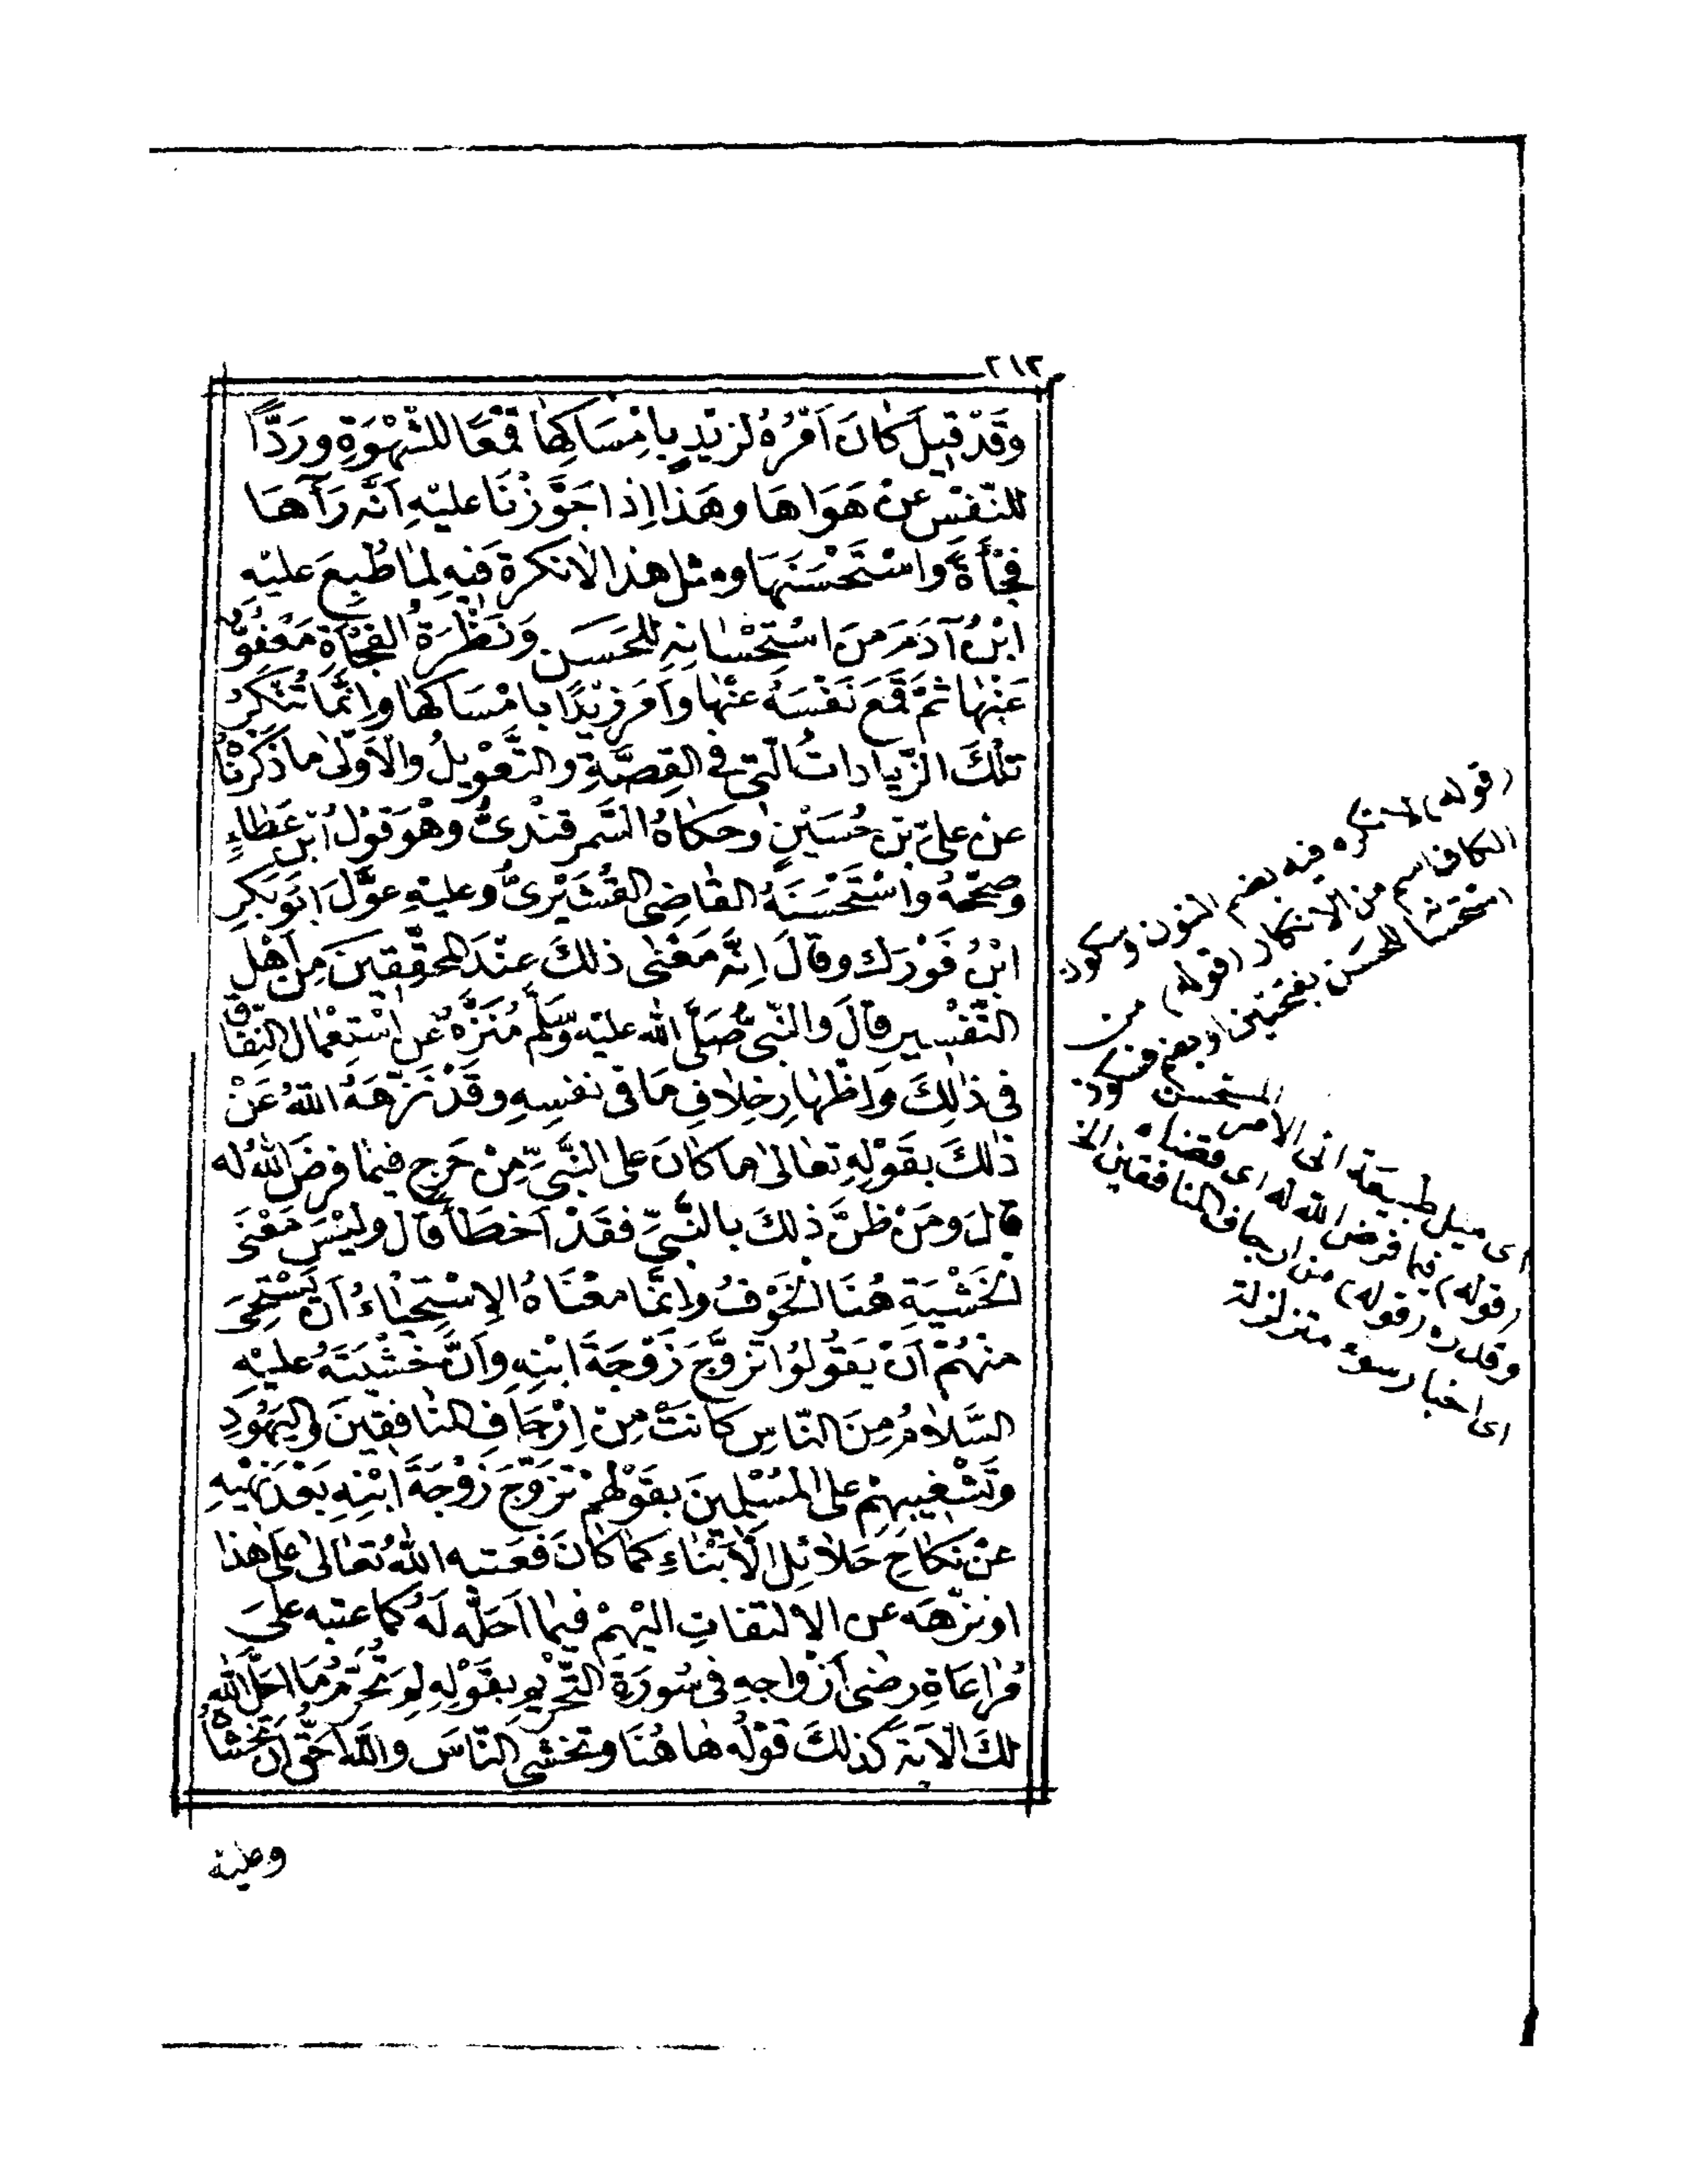 ٢١٢
وَقَدْ قِيلَ كَانَ اَمْرُهُ لِزَيْدٍ بِاِمْسَاكِهَا قَمْعًا لِلشَّهْوَةِ وَرَدًّا
لِلنَّفْسِ عَنْ هَوَاهَا وَهَذَا اِذَا جَوَّزْنَا عَلَيْهِ اَنَّهُ رَآهَا
فَجْأَةً وَاسْتَحْسَنَهَا وَمِثْلُ هَذَا لَا نُكْرَةَ فِيهِ لِمَا طُبِعَ عَلَيْهِ
ابْنُ آدَمَ مِنَ اسْتِحْسَانِهِ لِلْحَسَنِ وَنَظْرَةُ الْفَجْأَةِ مَعْفُوٌّ
عَنْهَا ثُمَّ قَمَعَ نَفْسَهُ عَنْهَا وَاَمَرَ زَيْدًا بِاِمْسَاكِهَا وَاِنَّمَا تُنْكَرُ
تِلْكَ الزِّيَادَاتُ الَّتِى فِى الْقِصَّةِ وَالتَّعْوِيلُ وَالْاَوْلَى مَا ذَكَرْنَاهُ
عَنْ عَلِىِّ بْنِ حُسَيْنٍ وَحَكَاهُ السَّمَرْقَنْدِىُّ وَهُوَ قَوْلُ ابْنِ عَطَاءٍ
وَصَحَّحَهُ وَاسْتَحْسَنَهُ الْقَاضِى الْقُشَيْرِىُّ وَعَلَيْهِ عَوَّلَ اَبُو بَكْرِ
ابْنُ فَوْرَك وَقَالَ اِنَّهُ مَعْنَى ذَلِكَ عِنْدَ الْمُحَقِّقِينَ مِنْ اَهْلِ
التَّفْسِيرِ قَالَ وَالنَّبِىُّ صَلَّى اللهُ عَلَيْهِ وَسَلَّمَ مُنَزَّهٌ عَنِ اسْتِعْمَالِ النِّفَاقِ
فِى ذَلِكَ وَاِظْهَارِ خِلَافِ مَا فِى نَفْسِهِ وَقَدْ نَزَّهَهُ اللهُ عَنْ
ذَلِكَ بِقَوْلِهِ تَعَالَى مَا كَانَ عَلَى النَّبِىِّ مِنْ حَرَجٍ فِيمَا فَرَضَ اللهُ لَه
قَالَ وَمَنْ ظَنَّ ذَلِكَ بِالنَّبِىِّ فَقَدْ اَخْطَأَ قَالَ وَلَيْسَ مَعْنَى
الْخَشْيَةِ هُنَا الْخَوْفُ وَاِنَّمَا مَعْنَاهُ الْاِسْتِحْيَاءُ اَنْ يَسْتَحْيِىَ
مِنْهُمْ اَنْ يَقُولُوا تَزَوَّجَ زَوْجَةَ ابْنِهِ وَاَنَّ خَشْيَتَهُ عَلَيْهِ
السَّلَامُ مِنَ النَّاسِ كَانَتْ مِنْ اِرْجَافِ الْمُنَافِقِينَ وَالْيَهُودِ
وَتَشْغِيبِهِمْ عَلَى الْمُسْلِمِينَ بِقَوْلِهِمْ تَزَوَّجَ زَوْجَةَ ابْنِهِ بَعْدَ نَهْيِهِ
عَنْ نِكَاحِ حَلَائِلِ الْاَبْنَاءِ كَمَا كَانَ فَعَتَبَه اللهُ تَعَالَى عَلَى هَذَا
اَوْ نَزَّهَهُ عَنِ الْاِلْتِفَاتِ اِلَيْهِمْ فِيمَا اَحَلَّهُ لَهُ كَمَا عَتَبَهُ عَلَى
مُرَاعَاةِ رِضَى اَزْوَاجِهِ فِى سُورَةِ التَّحْرِيمِ بِقَوْلِهِ لِمَ تُحَرِّمُ مَا اَحَلَّ اللهُ
لَكَ الْآيَةَ كَذَلِكَ قَوْلُهُ هَاهُنَا وَتَخْشَى النَّاسَ وَاللهُ اَحَقُّ اَنْ تَخْشَاهُ
(قوله) لا نكره فيه بضم النون وسكون
الكاف اسم من الانكار (قوله) من
استحسانه للحسن بفتحتين او بضم فسكون
المستحسن
اى ميل طبيعته الى الامر
(قوله) فيما فرض الله له اى قضاه
وقدره (قوله) من ارجاف المنافقين الخ
اى اخبار سوء متزلزلة